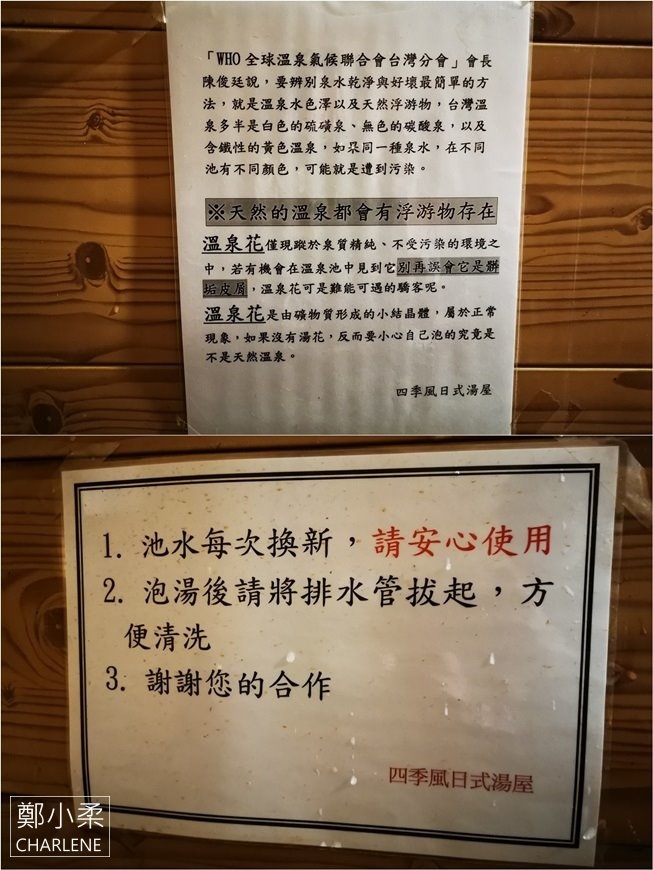 「WHO 全球溫泉氣候聯合會台灣分會」會長
陳俊廷說，要辨別泉水乾淨與好壞最簡單的方
法，就是溫泉水色澤以及天然浮游物，台灣溫
泉多半是白色的硫磺泉、無色的碳酸泉，以及
含鐵性的黃色溫泉，如朵同一種泉水，在不同
池有不同顏色，可能就是遭到污染。
※天然的溫泉都會有浮游物存在
溫泉花僅現蹤於泉質精純、不受污染的環境之
中，若有機會在溫泉池中見到它別再誤會它是髒
垢皮屑，溫泉花可是難能可遇的驕客呢。
溫泉花是由礦物質形成的小結晶體，屬於正常
現象，如果沒有湯花，反而要小心自己泡的究竟是
不是天然溫泉。
四季風日式湯屋
1. 池水每次換新，請安心使用
2. 泡湯後請將排水管拔起，方
便清洗
3. 謝謝您的合作
四季風日式湯屋
鄭小柔
CHARLENE